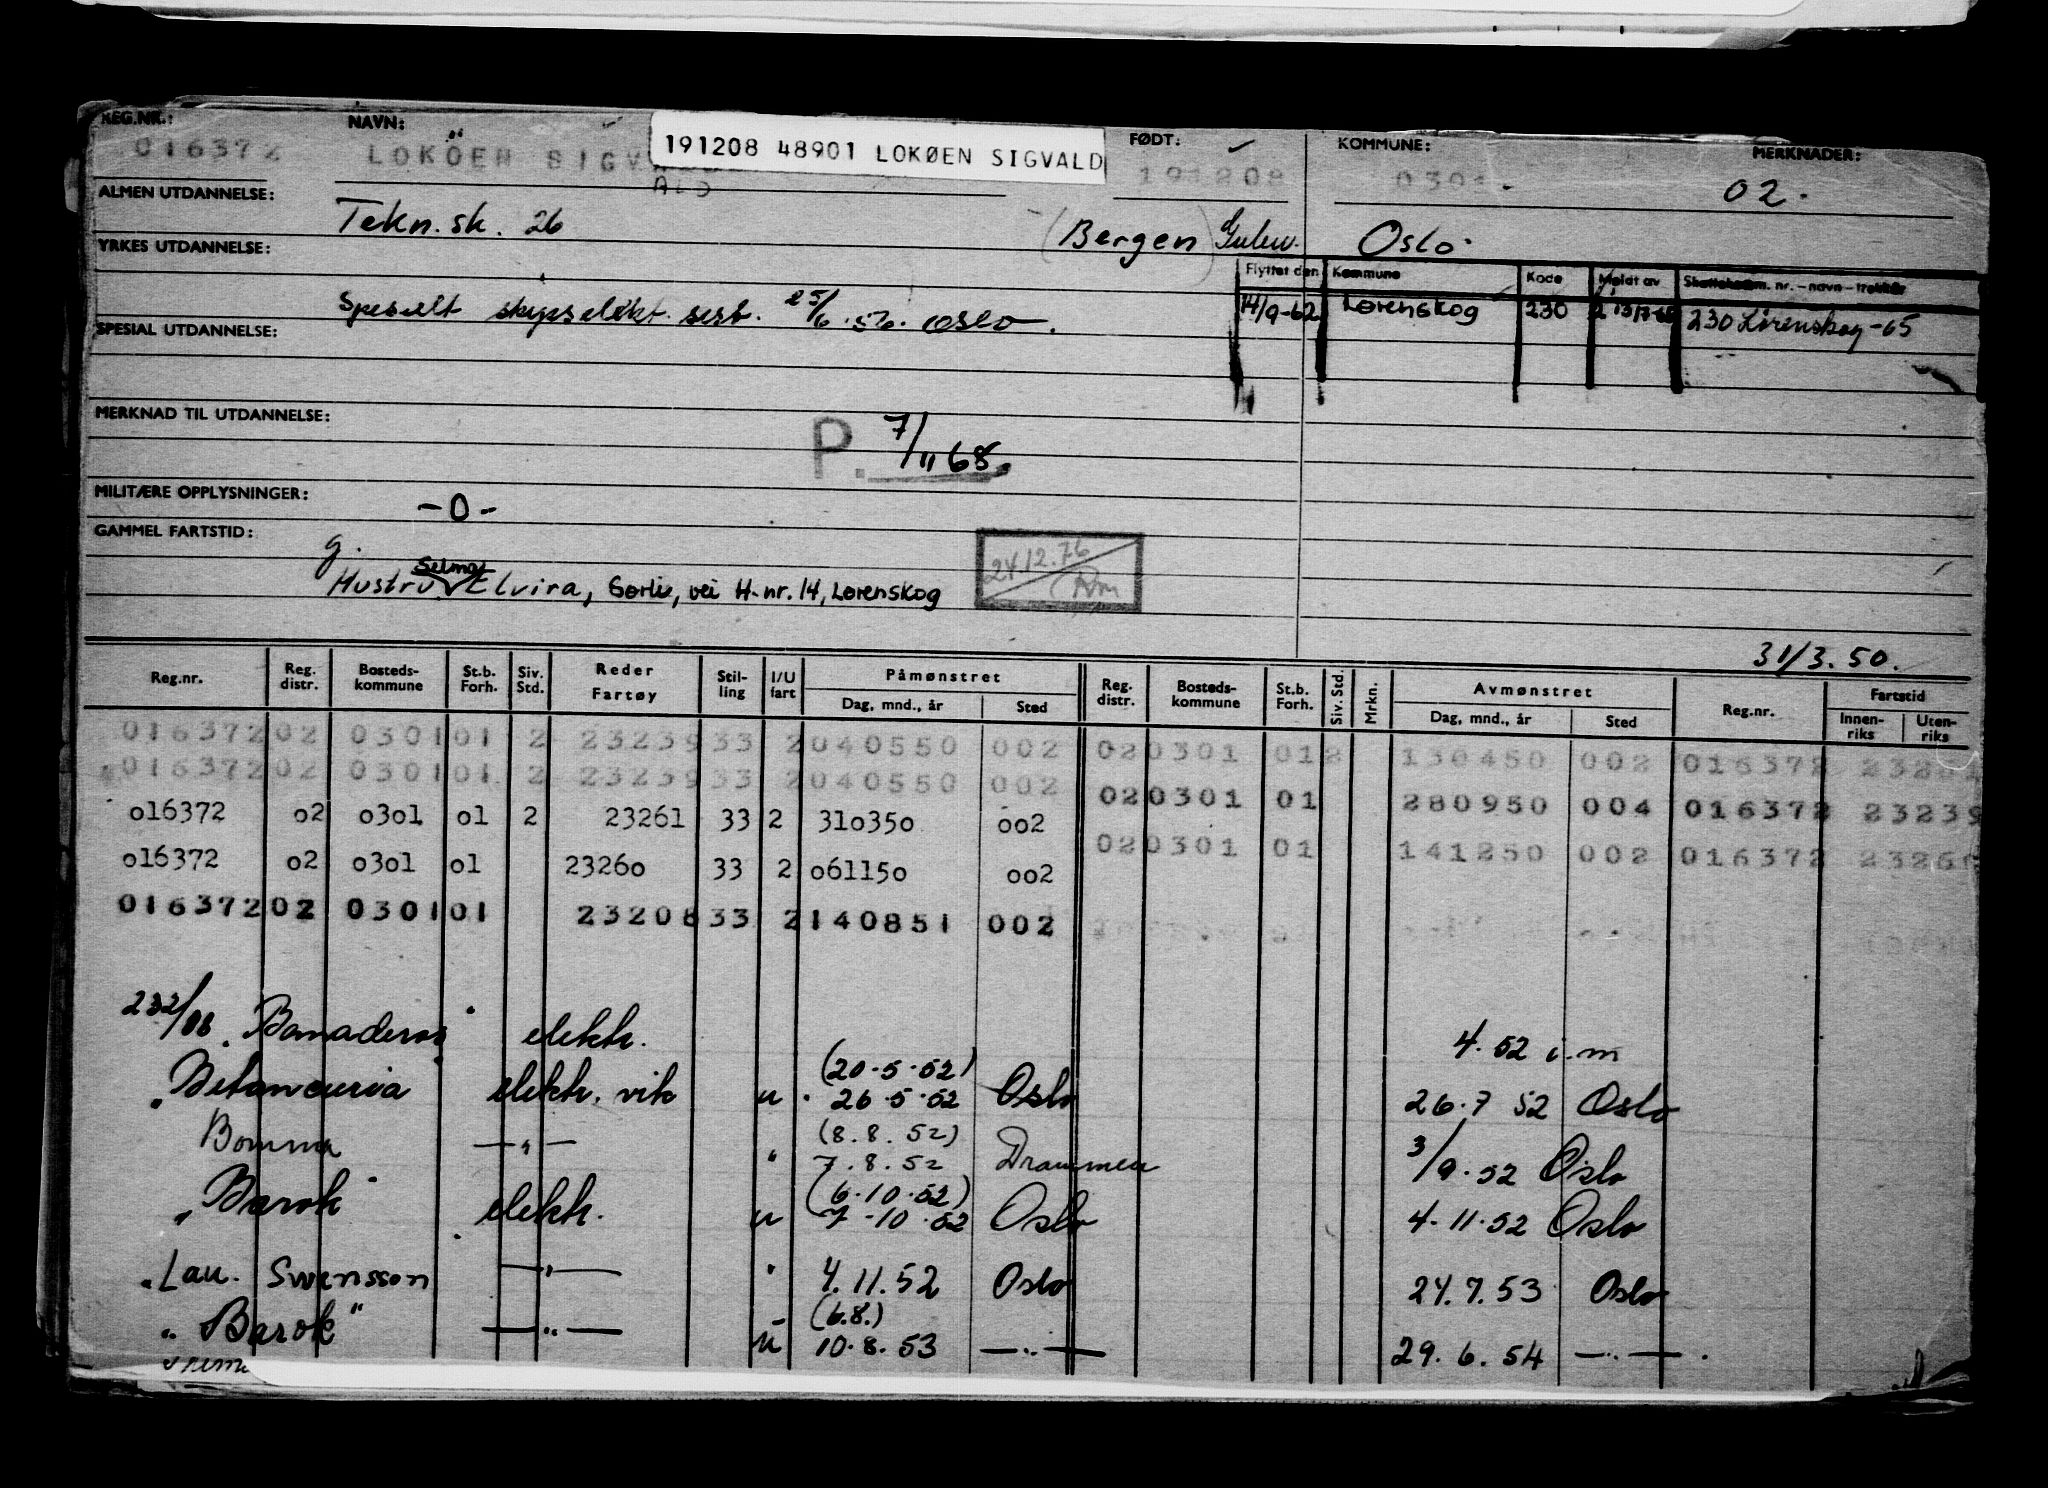 REG.NR.: NAVN: FØDT: KOMMUNE: MERKNADER:
016372 LOKÖEN SIGV ALD 191208 48901 LOKØEN SIGVALD 191208 0301 02.
ALMEN UTDANNELSE: Tekn. sk. 26
(Bergen) Gulen. Oslo
YRKES UTDANNELSE:
Flyttet den Kommune Kode Meldt av Skattekom. nr. - navn - trekkår
14/9-62 Lørenskog 230 230 Lørenskog -65
Spesielt skipselekt. sert. 25/6.56. Oslo.
SPESIAL UTDANNELSE:
MERKNAD TIL UTDANNELSE:
P. 7/11 68.
MILITÆRE OPPLYSNINGER: -0-
GAMMEL FARTSTID:
g.
Selma
Hustru Elvira, Sørli, vei H. nr. 14, Lørenskog
24.12.76
31/3.50.
Reg.nr. Reg. distr. Bosteds-kommune St.b. Forh. Siv. Std. Reder Fartøy Stil-ling I/U fart Påmønstret Dag, mnd., år Sted Reg. distr. Bosteds-kommune St.b. Forh. Siv. Std. Mrkn. Avmønstret Dag, mnd., år Sted Reg.nr. Fartstid Innen-riks Uten-riks
016372 02 0301 01 2 23239 33 2 040550 002 02 0301 01 2 130450 002 016372 23261
016372 02 0301 01 2 23239 33 2 040550 002
02 0301 01 280950 004 016372 23239
016372 02 0301 01 2 23261 33 2 310350 002
02 0301 01 141250 002 016372 23260
016372 02 0301 01 23260 33 2 061150 002
016372 02 0301 01 23208 33 2 140851 002
232/08 "Banaderos" elektr. 4.52 i.m
(20.5.52)
"Betancuria elektr. vik u 26.5.52 Oslo 26.7 52 Oslo
(8.8.52)
Bomma —"— " 7.8.52 Drammen 3/9.52 Oslo
(6.10.52)
"Barok" elektr. u 7-10.52 Oslo 4.11.52 Oslo
"Lau. Swensson —"— " 4.11.52 Oslo 24.7.53 Oslo
(6.8.)
"Barok" —"— u 10.8.53 —"— 29.6.54 —"—